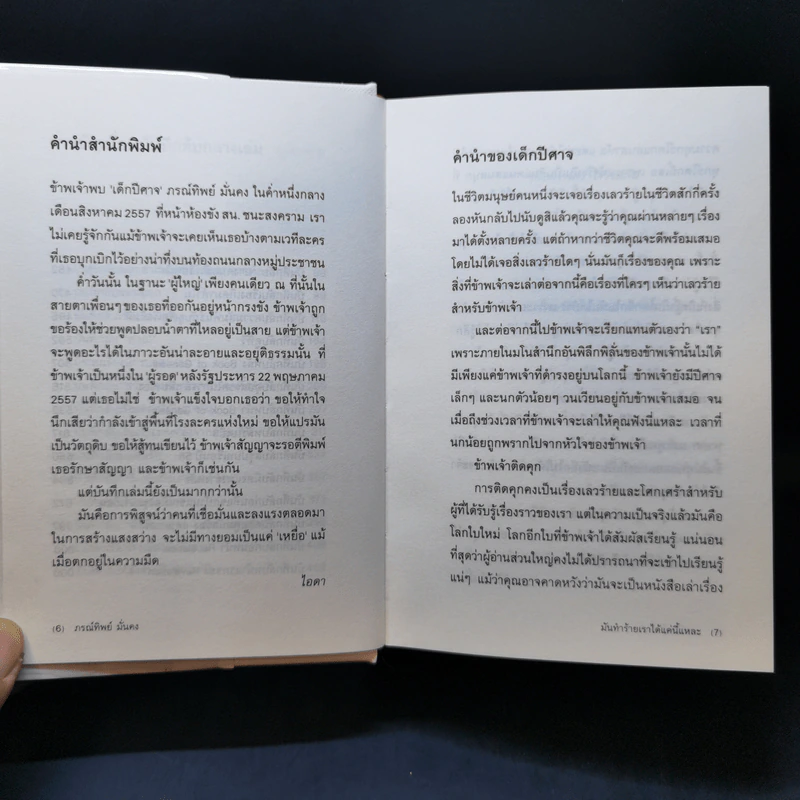 คำนำสำนักพิมพ์
ข้าพเจ้าพบ 'เด็กปีศาจ' ภรณ์ทิพย์ มั่นคง ในค่ำหนึ่งกลาง
เดือนสิงหาคม 2557 ที่หน้าห้องขัง สน. ชนะสงคราม เรา
ไม่เคยรู้จักกันแม้ข้าพเจ้าจะเคยเห็นเธอบ้างตามเวทีละคร
ที่เธอบุกเบิกไว้อย่างน่าทึ่งบนท้องถนนกลางหมู่ประชาชน
ค่ำวันนั้น ในฐานะ 'ผู้ใหญ่' เพียงคนเดียว ณ ที่นั้นใน
สายตาเพื่อนๆ ของเธอที่ออกันอยู่หน้ากรงขัง ข้าพเจ้าถูก
ขอร้องให้ช่วยพูดปลอบน้ำตาที่ไหลอยู่เป็นสาย แต่ข้าพเจ้า
จะพูดอะไรได้ในภาวะอันน่าละอายและอยุติธรรมนั้น ที่
ข้าพเจ้าเป็นหนึ่งใน 'ผู้รอด' หลังรัฐประหาร 22 พฤษภาคม
2557 แต่เธอไม่ใช่ ข้าพเจ้าแข็งใจบอกเธอว่า ขอให้ทำใจ
นึกเสียว่ากำลังเข้าสู่พื้นที่โรงละครแห่งใหม่ ขอให้แปรมัน
เป็นวัตถุดิบ ขอให้สู้ทนเขียนไว้ ข้าพเจ้าสัญญาจะรอตีพิมพ์
เธอรักษาสัญญา และข้าพเจ้าก็เช่นกัน
แต่บันทึกเล่มนี้ยังเป็นมากกว่านั้น
มันคือการพิสูจน์ว่าคนที่เชื่อมั่นและลงแรงตลอดมา
ในการสร้างแสงสว่าง จะไม่มีทางยอมเป็นแค่ 'เหยื่อ' แม้
เมื่อตกอยู่ในความมืด
ไอดา
(6) ภรณ์ทิพย์ มั่นคง
คำนำของเด็กปีศาจ
ในชีวิตมนุษย์คนหนึ่งจะเจอเรื่องเลวร้ายในชีวิตสักกี่ครั้ง
ลองหันกลับไปนับดูสิแล้วคุณจะรู้ว่าคุณผ่านหลายๆ เรื่อง
มาได้ตั้งหลายครั้ง แต่ถ้าหากว่าชีวิตคุณจะดีพร้อมเสมอ
โดยไม่ได้เจอสิ่งเลวร้ายใดๆ นั่นมันก็เรื่องของคุณ เพราะ
สิ่งที่ข้าพเจ้าจะเล่าต่อจากนี้คือเรื่องที่ใครๆ เห็นว่าเลวร้าย
สำหรับข้าพเจ้า
และต่อจากนี้ไปข้าพเจ้าจะเรียกแทนตัวเองว่า "เรา"
เพราะภายในมโนสำนึกอันพิลึกพิลั่นของข้าพเจ้านั้นไม่ได้
มีเพียงแค่ข้าพเจ้าที่ดำรงอยู่บนโลกนี้ ข้าพเจ้ายังมีปีศาจ
เล็กๆ และนกตัวน้อยๆ วนเวียนอยู่กับข้าพเจ้าเสมอ จน
เมื่อถึงช่วงเวลาที่ข้าพเจ้าจะเล่าให้คุณฟังนี่แหละ เวลาที่
นกน้อยถูกพรากไปจากหัวใจของข้าพเจ้า
ข้าพเจ้าติดคุก
การติดคุกคงเป็นเรื่องเลวร้ายและโศกเศร้าสำหรับ
ผู้ที่ได้รับรู้เรื่องราวของเรา แต่ในความเป็นจริงแล้วมันคือ
โลกใบใหม่ โลกอีกใบที่ข้าพเจ้าได้สัมผัสเรียนรู้ แน่นอน
ที่สุดว่าผู้อ่านส่วนใหญ่คงไม่ได้ปรารถนาที่จะเข้าไปเรียนรู้
แน่ๆ แม้ว่าคุณอาจคาดหวังว่ามันจะเป็นหนังสือเล่าเรื่อง
มันทำร้ายเราได้แค่นี้แหละ (7)